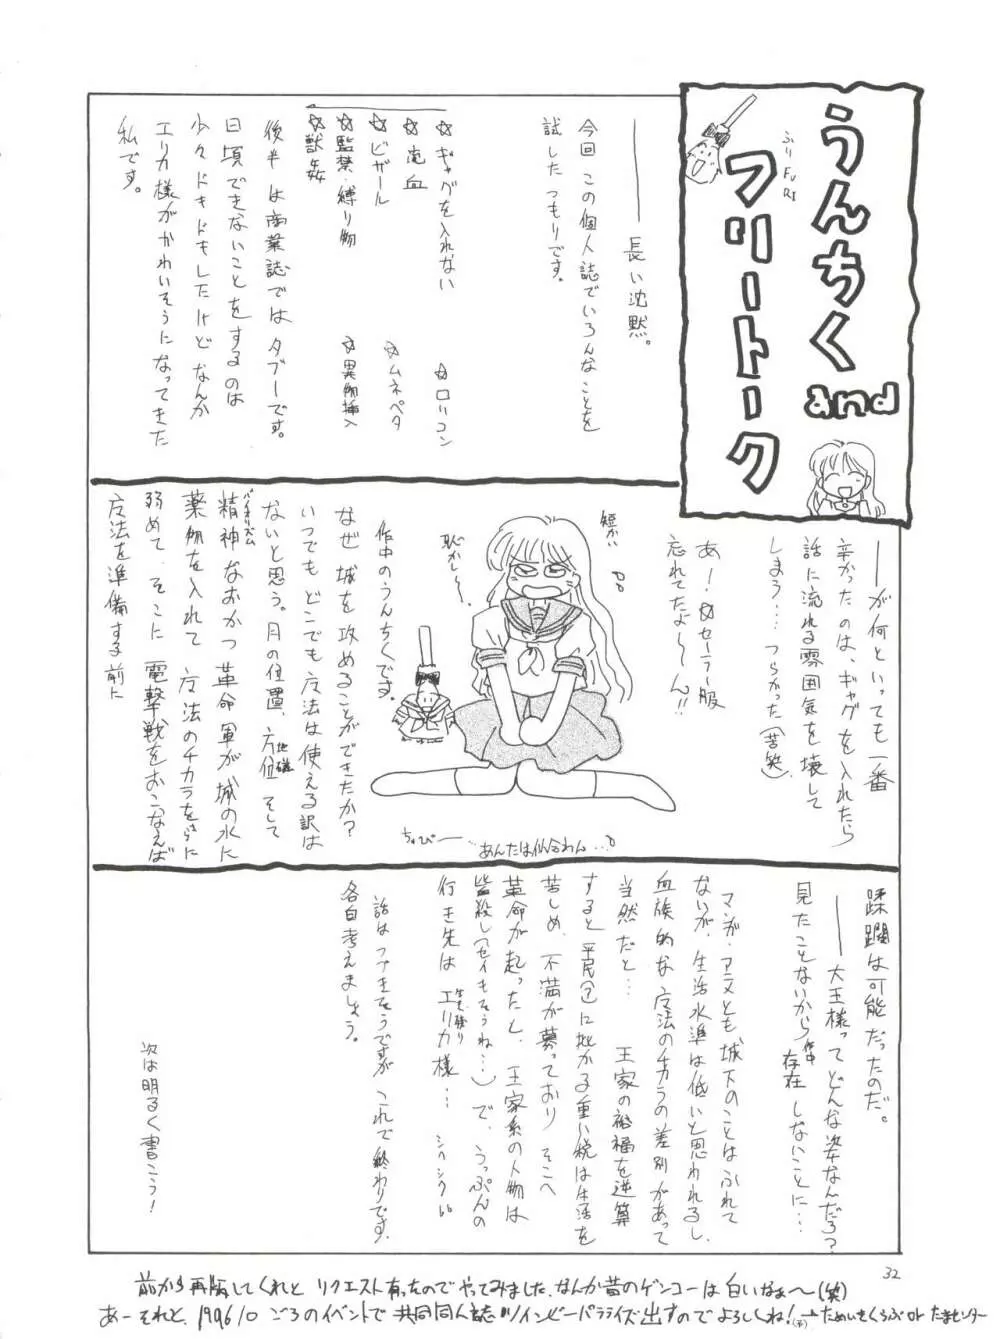 うんちく
and
フリートーク
ふりFURI
――長い沈黙。
今回この個人誌でいろんなことを
試したつもりです。
☆ギャグを入れない
☆ロリコン
☆流血
☆ムネペタ
☆ビザール
☆監禁・縛り物
☆異物挿入
☆獣姦
後半は商業誌ではタブーです。
日頃できないことをするのは
少々ドキドキもしたけどなんか
エリカ様がかわいそうになってきた
私です。
――が何といっても一番
辛かったのは、ギャグを入れたら
話に流れる雰囲気を壊して
しまう…つらかった(苦笑)
あ!☆セーラー服
忘れてたよ〜〜ん!!
短かい
恥かし〜〜、
ちゅぴ――
あんたは似合わん…
作中のうんちくです。
なぜ城を攻めることができたか?
いつでもどこでも魔法は使える訳は
ないと思う。月の位置、方位 地磁 そして
精神 バイオリズム なおかつ革命軍が城の水に
薬物を入れて魔法のチカラをさらに
弱めて、そこに電撃戦をおこなえば
魔法を準備する前に
蹂躙は可能だったのだ。
――大王様ってどんな姿なんだろ?
見たことないから作中存在しないことに…
マンガ・アニメとも城下のことはふれて
ないが、生活水準は低いと思われるし、
血族的な魔法のチカラの差別があって
当然だと… 王家の裕福を逆算
すると平民(?)に掛かる重い税は生活を
苦しめ、不満が募っており そこへ
革命が起ったと、王家系の人物は
皆殺し(セイもそうね…)で、うっぷんの
行き先は 生き残り エリカ様… シクシク
話はつづきそうですが これで終わりです。
各自考えましょう。
次は明るく書こう!
32
前から再版してくれと リクエスト有ったのでやってみました、なんか昔のゲンコーは白いなぁ〜(笑)
あーそれと、1996/10 ごろのイベントで 共同同人誌ツインビーパラライズ出すのでよろしくね!